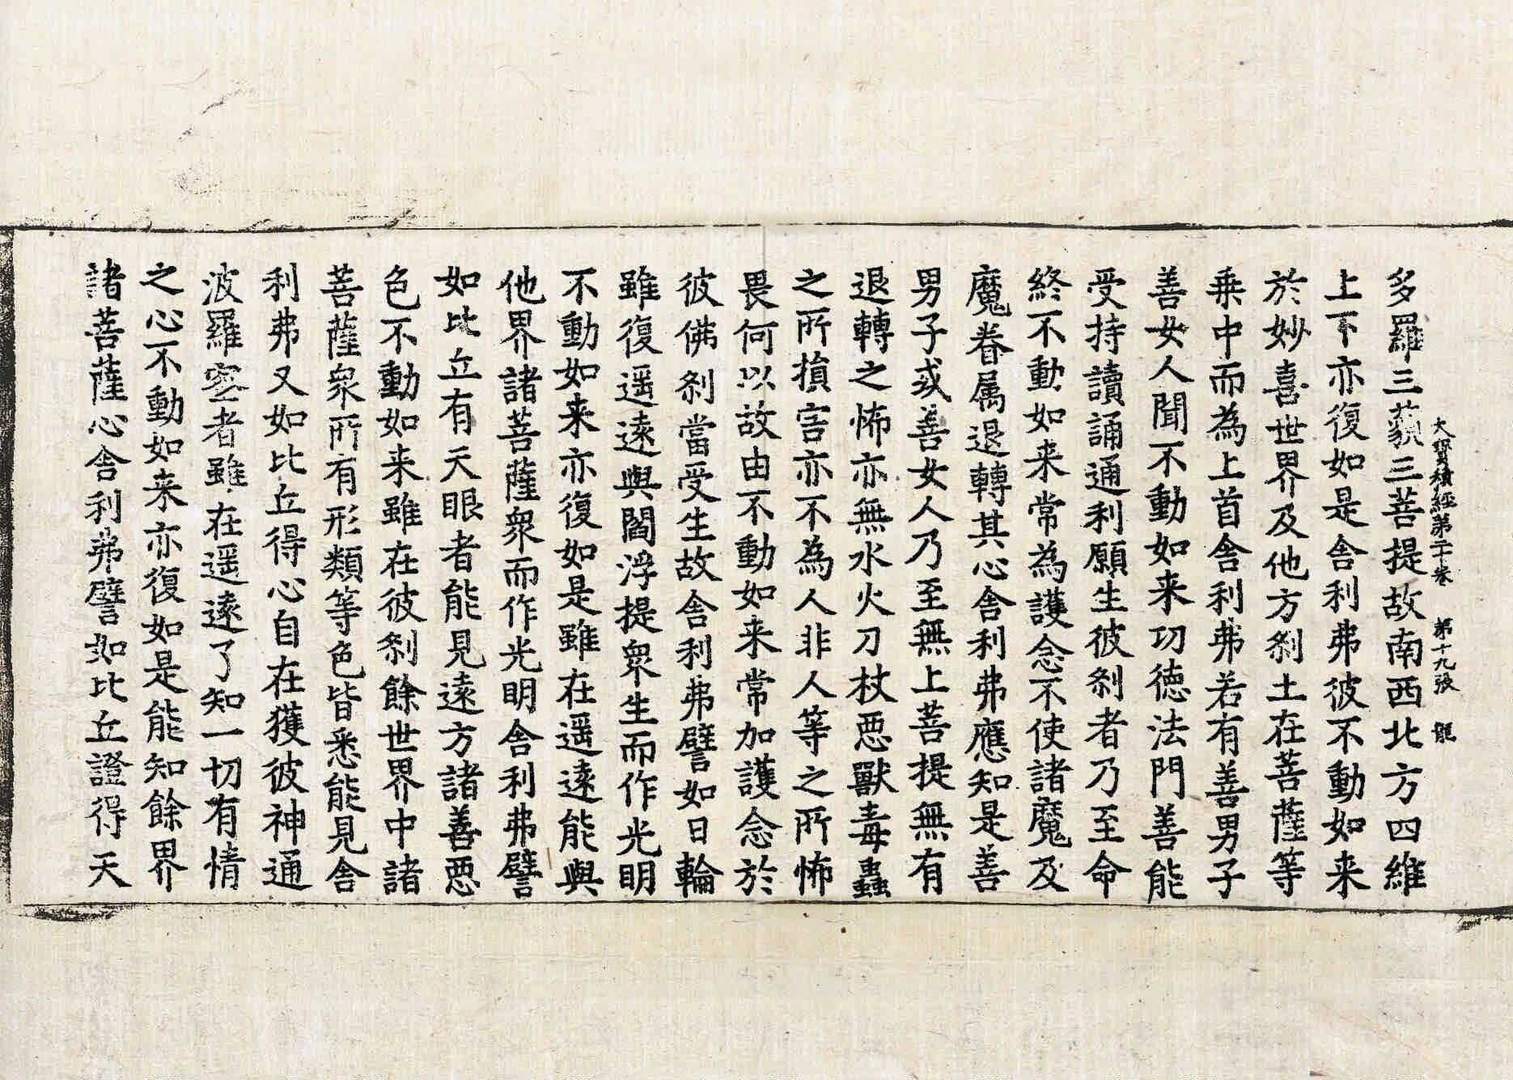 大寶積經第二十卷　第十九張　龍
多羅三藐三菩提故南西北方四維
上下亦復如是舍利弗彼不動如来
於妙喜世界及他方刹土在菩薩等
乗中而為上首舍利弗若有善男子
善女人聞不動如来功徳法門善能
受持讀誦通利願生彼刹者乃至命
終不動如来常為護念不使諸魔及
魔眷属退轉其心舍利弗應知是善
男子或善女人乃至無上菩提無有
退轉之怖亦無水火刀杖惡獸毒蟲
之所損害亦不為人非人等之所怖
畏何以故由不動如来常加護念於
彼佛刹當受生故舍利弗譬如日輪
雖復遥遠與閻浮提眾生而作光明
不動如来亦復如是雖在遥遠能與
他界諸菩薩眾而作光明舍利弗譬
如比丘有天眼者能見遠方諸善惡
色不動如来雖在彼刹餘世界中諸
菩薩眾所有形類等色皆悉能見舍
利弗又如比丘得心自在獲彼神通
波羅蜜者雖在遥遠了知一切有情
之心不動如来亦復如是能知餘界
諸菩薩心舍利弗譬如比丘證得天